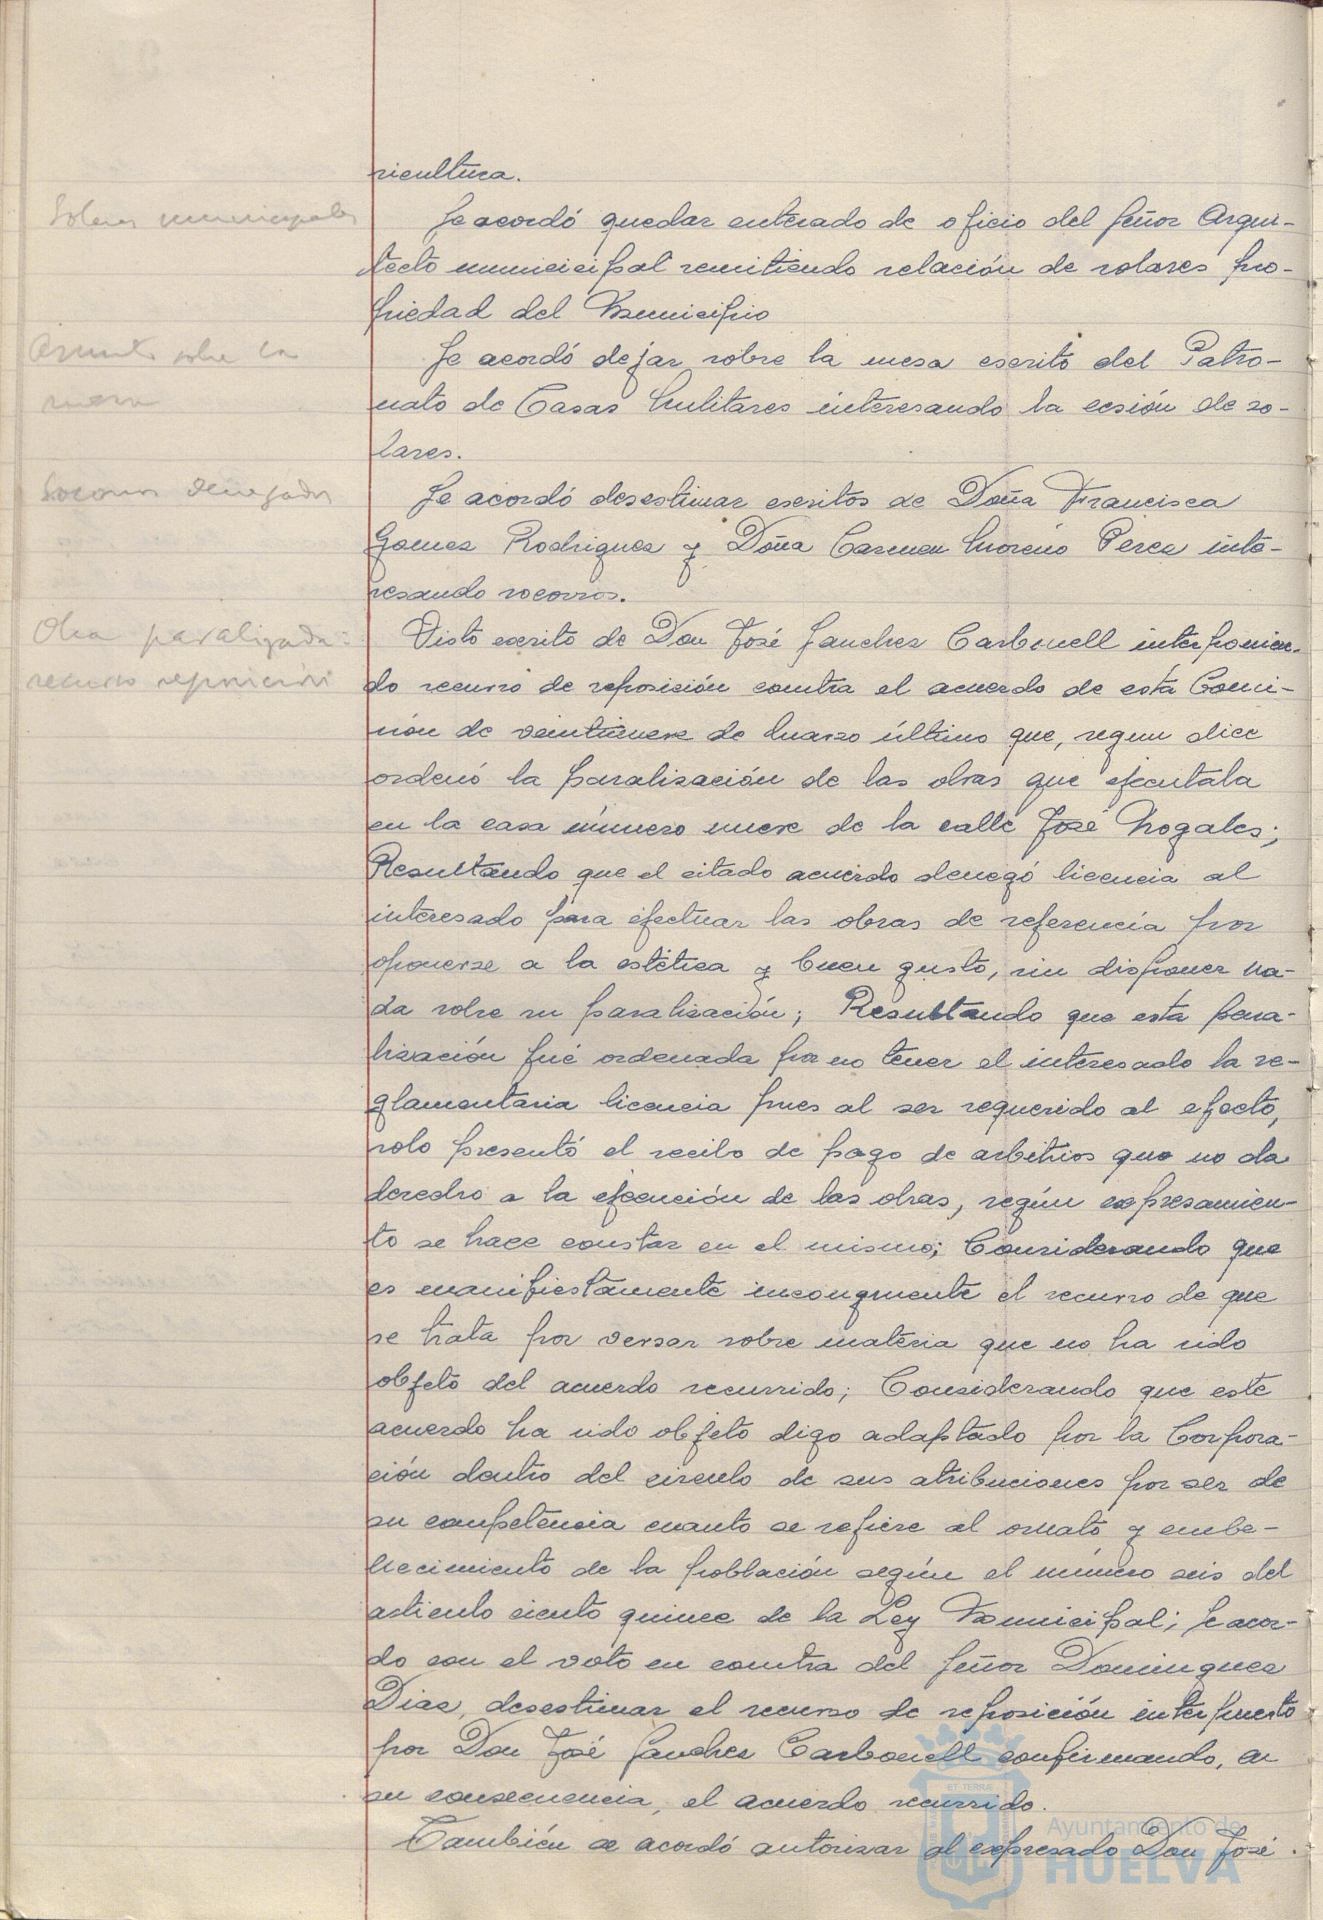 ricultura.
Solares municipales
Se acordó quedar enterado de oficio del Señor Arqui-
tecto municicipal remitiendo relación de solares pro-
piedad del Municipio
Asunto sobre la
mesa
Se acordó dejar sobre la mesa escrito del Patro-
nato de Casas Militares interesando la cesión de so-
lares.
Socorros denegados
Se acordó desestimar escritos de Doña Francisca
Gomez Rodriguez y Doña Carmen Moreno Perez inte-
resando socorros.
Obra paralizada:
recurso reposición
Visto escrito de Don José Sanchez Carbonell interponien-
do recurso de reposición contra el acuerdo de esta Comi-
sión de veintinueve de Marzo último que, segun dice
ordenó la paralización de las obras que ejecutaba
en la casa número nueve de la calle José Nogales;
Resultando que el citado acuerdo denegó licencia al
interesado para efectuar las obras de referencia por
oponerse a la estética y buen gusto, sin disponer na-
da sobre su paralización; Resultando que esta para-
lización fué ordenada por no tener el interesado la re-
glamentaria licencia pues al ser requerido al efecto,
solo presentó el recibo de pago de arbitrios que no da
derecho a la ejecución de las obras, según expresamien-
to se hace constar en el mismo; Considerando que
es manifiestamente incongruente el recurso de que
se trata por versar sobre materia que no ha sido
objeto del acuerdo recurrido; Considerando que este
acuerdo ha sido objeto digo adaptado por la Corpora-
ción dentro del circulo de sus atribuciones por ser de
su competencia cuanto se refiere al ornato y embe-
llecimiento de la población según el número seis del
articulo ciento quince de la Ley Municipal; Se acor-
do con el voto en contra del Señor Dominguez
Diaz, desestimar el recurso de reposición interpuesto
por Don José Sanchez Carbonell confirmando, en
su consecuencia, el acuerdo recurrido.
También se acordó autorizar al expresado Don José
Ayuntamiento de
HUELVA